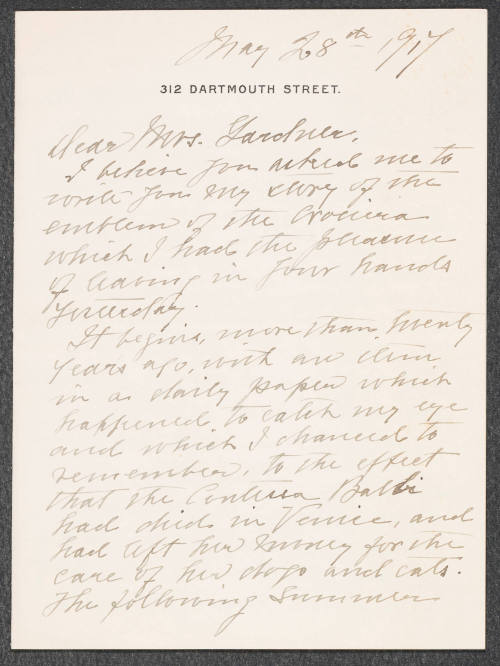 May 28th 1917
312 DARTMOUTH STREET.
Dear Mrs. Gardner,
I believe you asked me to
write you my story of the
emblem of the Crociera
which I had the pleasure
of leaving in your hands
yesterday.
It begins, more than twenty
years ago, with an item
in a daily paper which
happened to catch my eye
and which I chanced to
remember, to the effect
that the Contessa Balbi
had died in Venice, and
had left her money for the
care of her dogs and cats.
The following summer